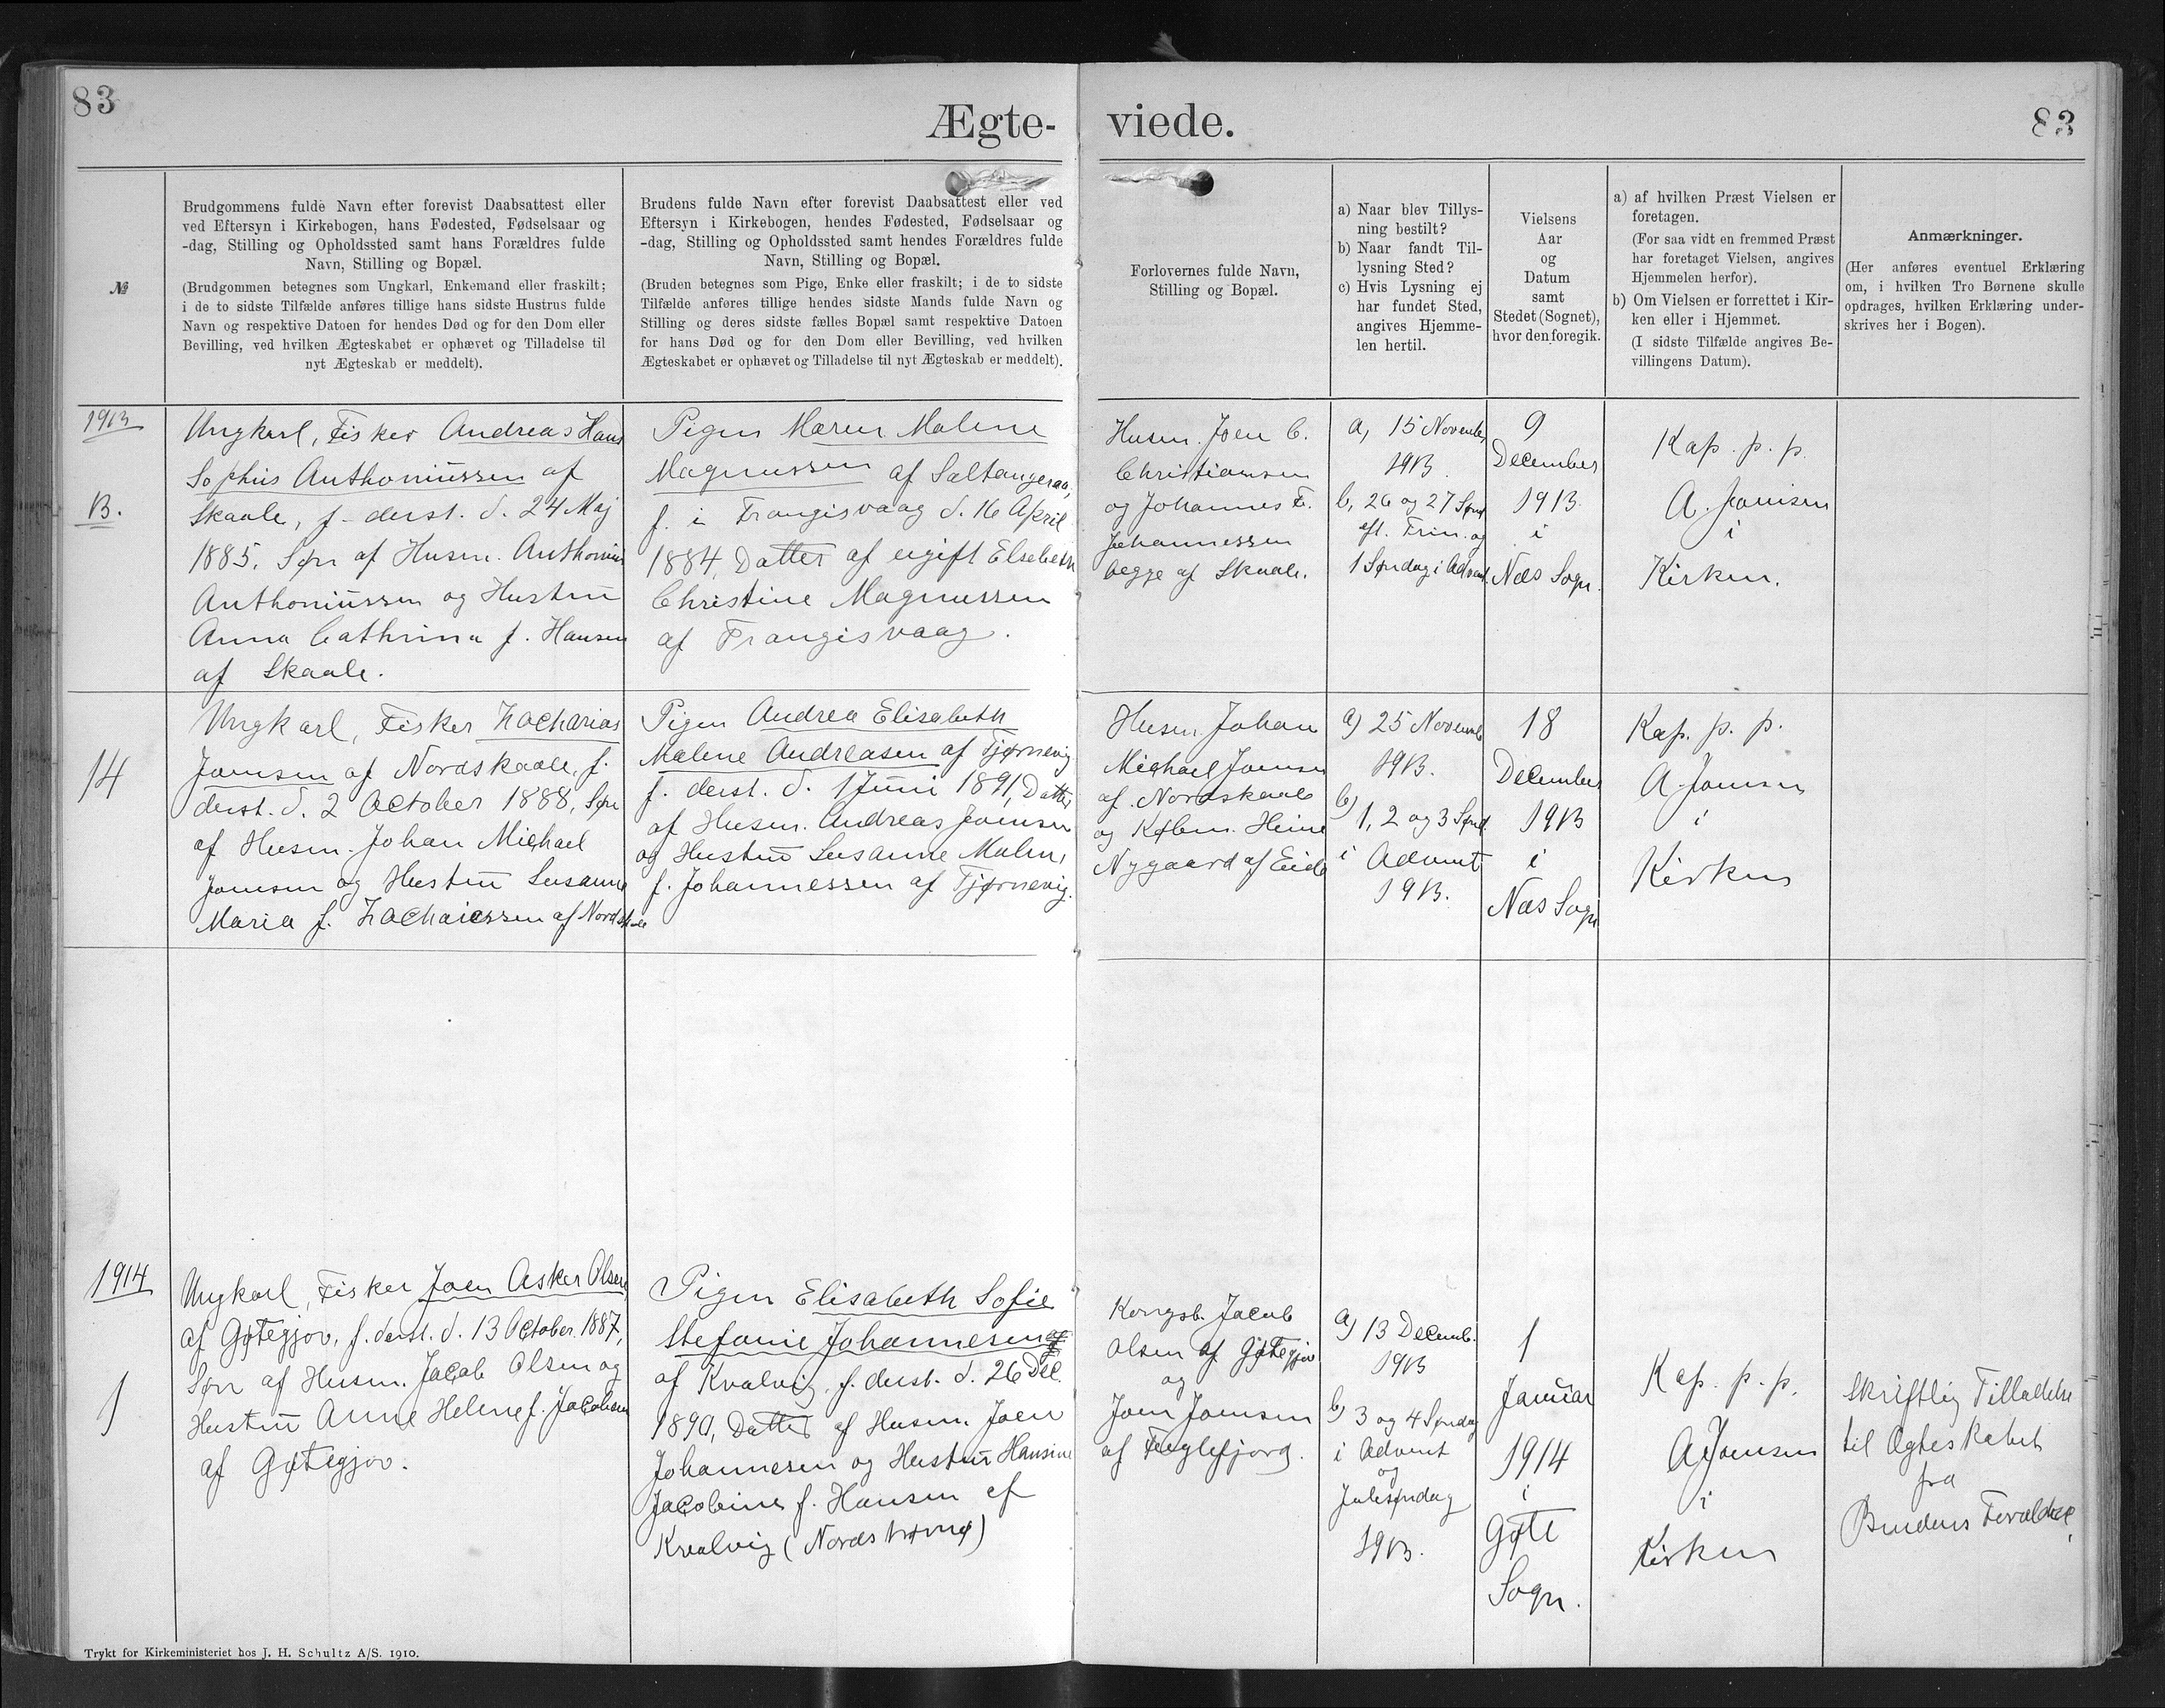 83
Ægte-
viede.
83
№
Brudgommens fulde Navn efter forevist Daabsattest eller
ved Eftersyn i Kirkebogen, hans Fødested, Fødselsaar og
-dag, Stilling og Opholdssted samt hans Forældres fulde
Navn, Stilling og Bopæl.
(Brudgommen betegnes som Ungkarl, Enkemand eller fraskilt;
i de to sidste Tilfælde anføres tillige hans sidste Hustrus fulde
Navn og respektive Datoen for hendes Død og for den Dom eller
Bevilling, ved hvilken Ægteskabet er ophævet og Tilladelse til
nyt Ægteskab er meddelt).
Brudens fulde Navn efter forevist Daabsattest eller ved
Eftersyn i Kirkebogen, hendes Fødested, Fødselsaar og
-dag, Stilling og Opholdssted samt hendes Forældres fulde
Navn, Stilling og Bopæl.
(Bruden betegnes som Pige, Enke eller fraskilt; i de to sidste
Tilfælde anføres tillige hendes sidste Mands fulde Navn og
Stilling og deres sidste fælles Bopæl samt respektive Datoen
for hans Død og for den Dom eller Bevilling, ved hvilken
Ægteskabet er ophævet og Tilladelse til nyt Ægteskab er meddelt).
Forlovernes fulde Navn,
Stilling og Bopæl.
a) Naar blev Tillys-
ning bestilt?
b) Naar fandt Til-
lysning Sted?
c) Hvis Lysning ej
har fundet Sted,
angives Hjemme-
len hertil.
Vielsens
Aar
og
Datum
samt
Stedet (Sognet),
hvor den foregik.
a) af hvilken Præst Vielsen er
foretagen.
(For saa vidt en fremmed Præst
har foretaget Vielsen, angives
Hjemmelen herfor).
b) Om Vielsen er forrettet i Kir-
ken eller i Hjemmet.
(I sidste Tilfælde angives Be-
villingens Datum).
Anmærkninger.
(Her anføres eventuel Erklæring
om, i hvilken Tro Børnene skulle
opdrages, hvilken Erklæring under-
skrives her i Bogen).
1913
13.
Ungkarl, Fisker Andreas Hans
Sophus Anthoniussen af
Skaale, f. derst. d. 24 Maj
1885, Søn af Husm. Anthonius
Anthoniussen og Hustru
Anna Cathrina f. Hansen
af Skaale.
Pigen Maren Malene
Magnussen af Saltangeraa,
f. i Frangisvaag d. 16 April
1884, Datter af ugift Elsebeth
Christine Magnussen
af Frangisvaag.
Husm. Joen C.
Christiansen
og Johannes F.
Johannessen
begge af Skaale.
a, 15 Novemb.
1913.
b, 26 og 27 Sønd
eft. Trin. og
1 Søndag i Advent.
9
December
1913
i
Næs Sogn.
Kap. p. p.
A. Joensen
i
Kirken.
14
Ungkarl, Fisker Zacharias
Joensen af Nordskaale, f.
derst. d. 2 October 1888, Søn
af Husm. Johan Michael
Joensen og Hustru Susanne
Maria f. Zachariassen af Nordskaale
Pigen Andrea Elisabeth
Malene Andreasen af Tjørnevig
f. derst. d. 1 Juni 1891, Datter
af Husm. Andreas Joensen
og Hustru Susanne Malene,
f. Johannessen af Tjørnevig.
Husm. Johan
Michael Joensen
af Nordskaale
og Købm. Heine
Nygaard af Eide
a) 25 Novemb
1913.
b) 1, 2 og 3 Sønd.
i Advent
1913.
18
December
1913
i
Næs Sogn
Kap. p. p.
A. Joensen
i
Kirken
1914
1
Ungkarl, Fisker Joen Asker Olsen
af Gøtegjov, f. derst. d. 13 October 1887,
Søn af Husm. Jacob Olsen og
Hustru Anne Helene f. Jacobsen
af Gøtegjov.
Pigen Elisabeth Sofie
Stefanie Johannesen
af Kvalvig, f. derst. d. 26 Dec.
1890, Datter af Husm. Joen
Johannesen og Hustru Hansine
Jacobine f. Hansen af
Kvalvig (Nordstrømø)
Kongsb. Jacob
Olsen af Gøtegjov
og
Joen Joensen
af Fuglefjord.
a) 13 Decemb.
1913
b) 3 og 4 Søndag
i Advent
og
Julesøndag
1913.
1
Januar
1914
i
Gøte
Sogn.
Kap. p. p.
A Joensen
i
Kirken
Skriftlig Tilladelse
til Ægteskabet
fra
Brudens Forældre
Trykt for Kirkeministeriet hos J. H. Schultz A/S. 1910.